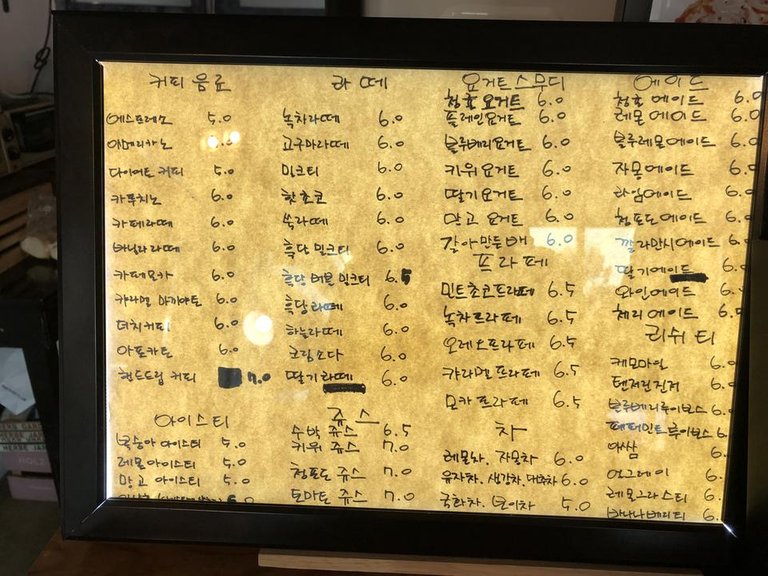 커피 음료
에스프레소 5.0
아메리카노
다이어트 커피 5.0
카푸치노 6.0
카페라떼 6.0
바닐라라떼 6.0
카페모카 6.0
카라멜 마끼아또 6.0
더치커피 6.0
아포카토 6.0
핸드드립 커피 7.0
아이스티
복숭아 아이스티 5.0
레몬아이스티 5.0
망고 아이스티 5.0
라떼
녹차라떼 6.0
고구마라떼 6.0
밀크티 6.0
핫초코 6.0
쑥라떼 6.0
흑당 밀크티 6.0
흑당 버블 밀크티 6.5
흑당라떼 6.0
하늘라떼 6.0
크림소다 6.0
딸기라떼 6.0
쥬스
수박 쥬스 6.5
키위 쥬스 7.0
청포도 쥬스 7.0
토마토 쥬스 7.0
요거트스무디
청포요거트 6.0
플레인요거트 6.0
블루베리요거트 6.0
키위요거트 6.0
딸기요거트 6.0
망고 요거트 6.0
갈아만든배 6.0
프라페
민트초코프라페 6.5
녹차프라페 6.5
오레오프라페 6.5
카라멜프라페 6.5
모카프라페 6.5
차
레몬차, 자몽차 6.0
유자차, 생강차, 대추차 6.0
국화차, 보이차 5.0
에이드
청포에이드 6.0
레몬에이드 6.0
블루레몬에이드 6.0
자몽에이드 6.0
라임에이드 6.0
청포도에이드 6.0
깔라만시에이드 6.0
딸기에이드 6.0
와인에이드 6.
체리에이드 6.0
리쉬티
케모마일 6.0
탠저린진저 6.0
블루베리루이보스 6.
페퍼민트루이보스 6.
아쌈 6.
얼그레이 6.
레몬그라스티 6.
바나나베리티 6.